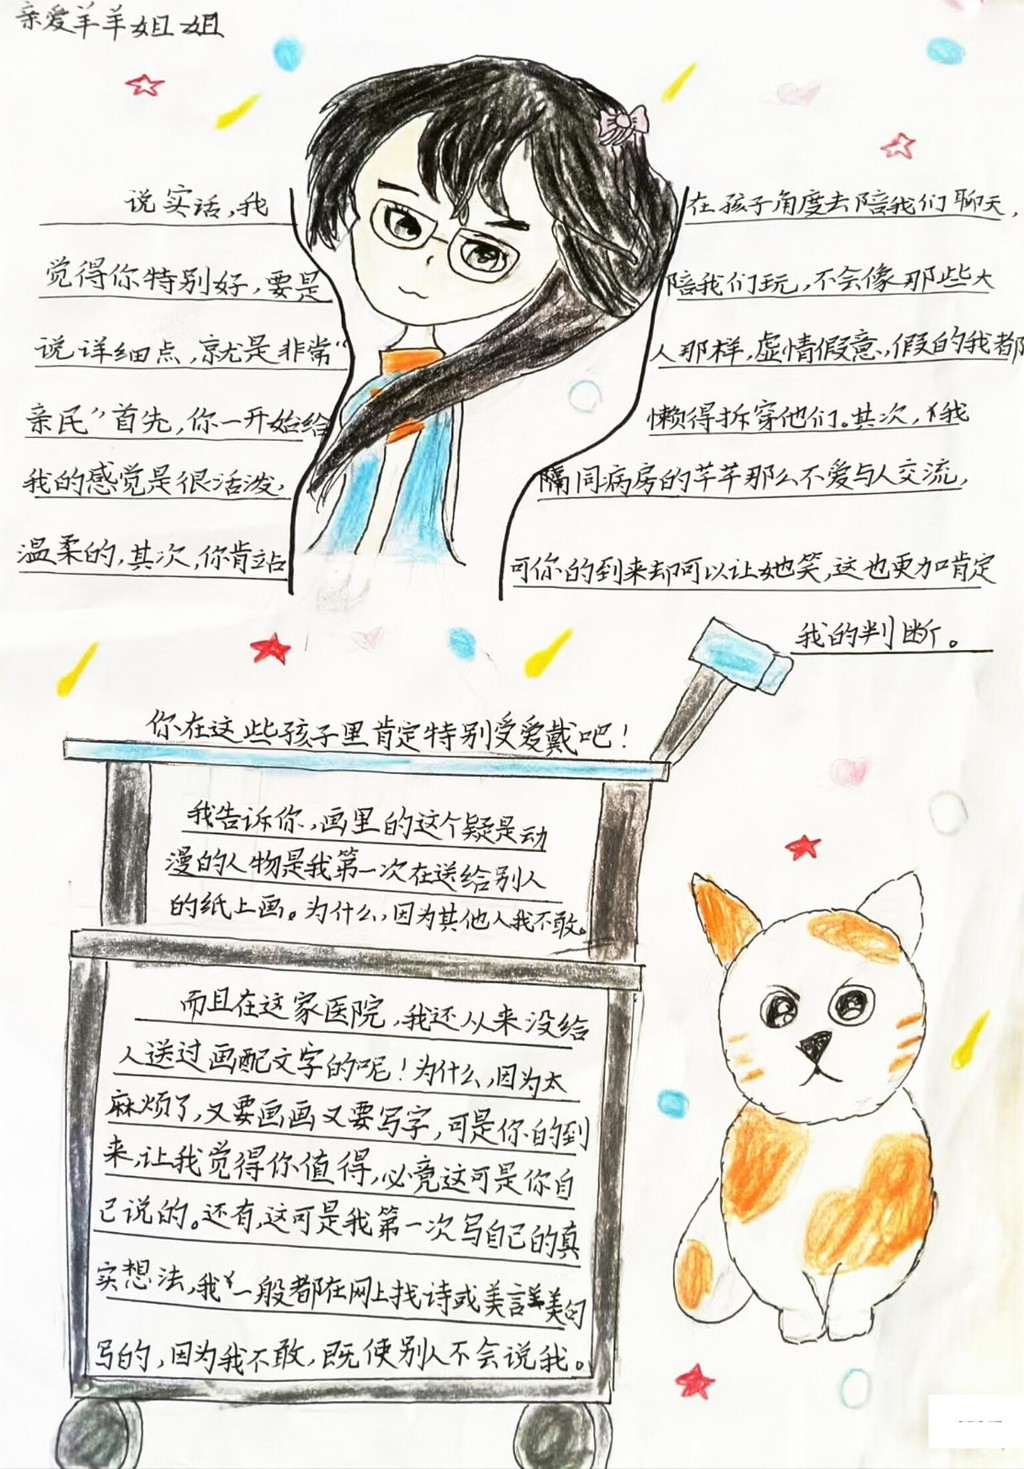 亲爱羊羊姐姐
说实话,我
觉得你特别好,要是
说详细点,就是非常“
亲民”首先,你一开始给
我的感觉是很活泼,
温柔的,其次,你肯站
在孩子角度去陪我们聊天,
陪我们玩,不会像那些大
人那样,虚情假意,假的我都
懒得拆穿他们。其次,我
隔同病房的芊芊那么不爱与人交流,
可你的到来却可以让她笑,这也更加肯定
我的判断。
你在这些孩子里肯定特别受爱戴吧!
我告诉你,画里的这个疑是动
漫的人物是我第一次在送给别人
的纸上画。为什么,因为其他人我不敢。
而且在这家医院,我还从来没给
人送过画配文字的呢!为什么,因为太
麻烦了,又要画画又要写字,可是你的到
来,让我觉得你值得,必竟这可是你自
己说的。还有,这可是我第一次写自己的真
实想法,我一般都在网上找诗或美言美句
写的,因为我不敢,既使别人不会说我。